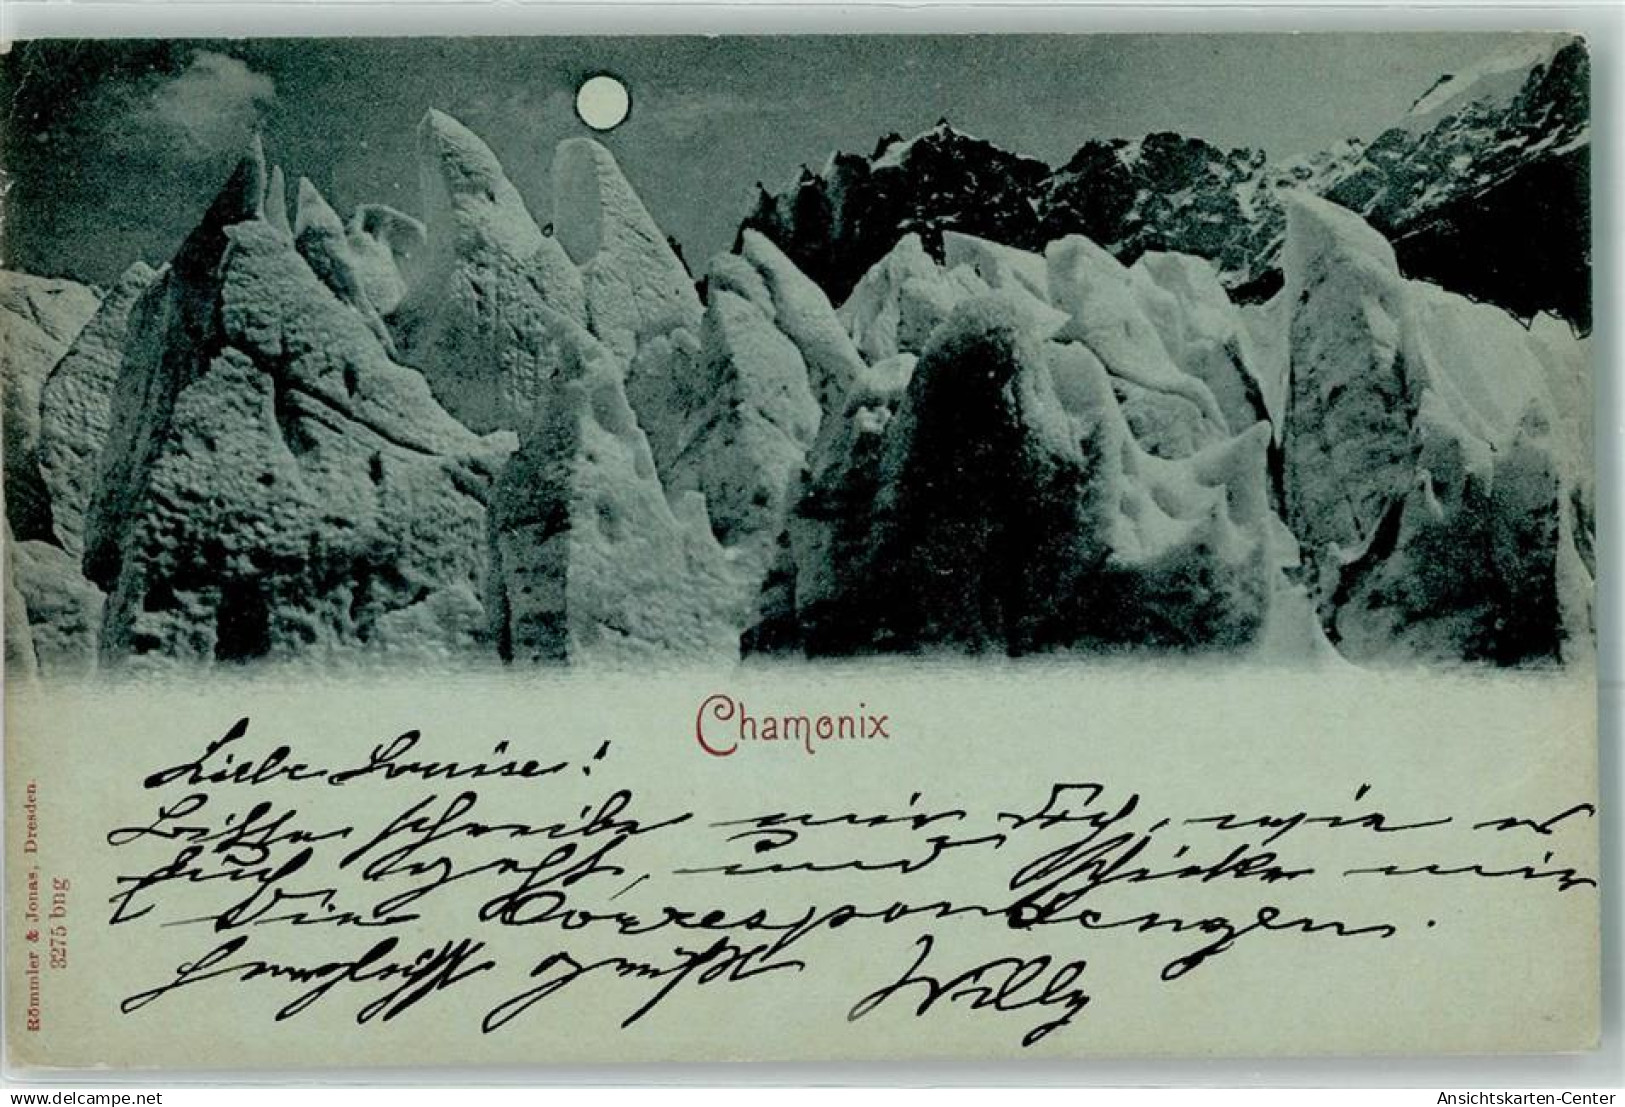 Chamonix
Liebe Louise!
Bitte schreibe mir doch, wie es
Euch geht, und schicke mir
die Correspondenzen.
Herzlichst grüßt Willy
Römmler & Jonas, Dresden.
3275 bng
Ansichtskarten-Center